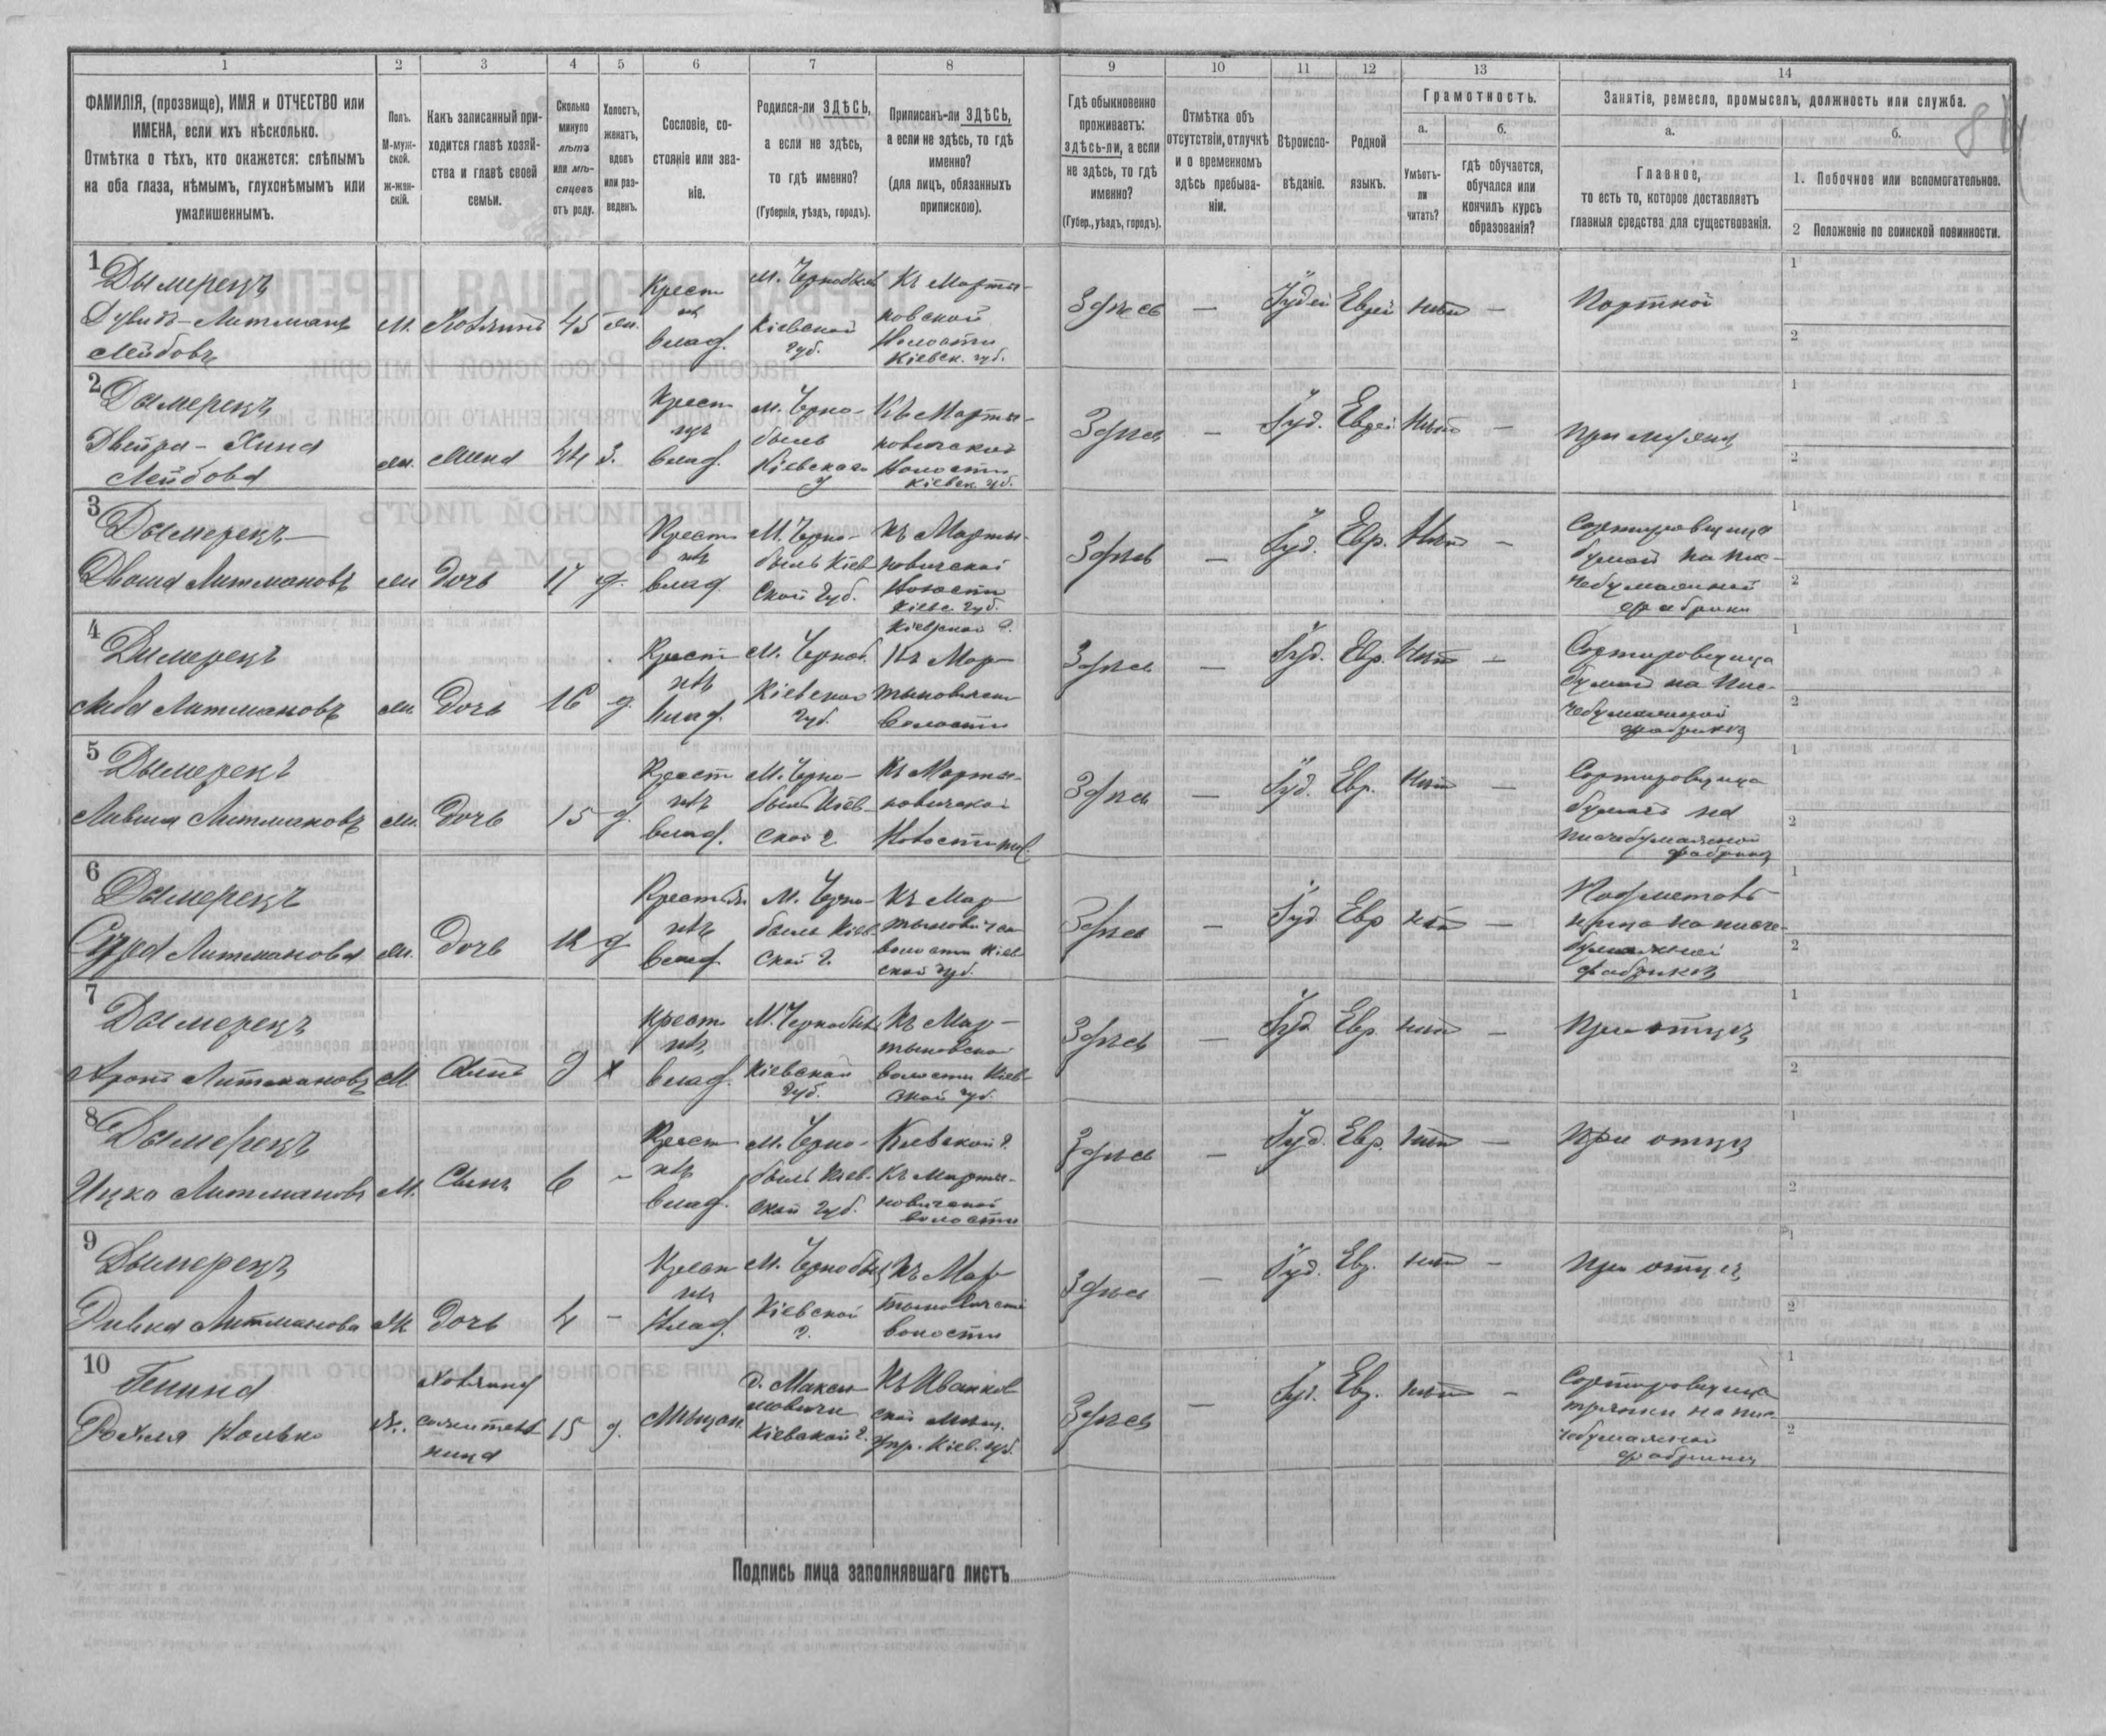 1 2 3 4 5 6 7 8 9 10 11 12 13 14
ФАМИЛІЯ, (прозвище), ИМЯ и ОТЧЕСТВО или
ИМЕНА, если ихъ нѣсколько.
Отмѣтка о тѣхъ, кто окажется: слѣпымъ
на оба глаза, нѣмымъ, глухонѣмымъ или
умалишеннымъ.
Полъ.
М-муж-
ской.
ж-жен-
скій.
Какъ записанный при-
ходится главѣ хозяй-
ства и главѣ своей
семьи.
Сколько
минуло
лѣтъ
или мѣ-
сяцевъ
отъ роду.
Холостъ,
женатъ,
вдовъ
или раз-
веденъ.
Сословіе, со-
стояніе или зва-
ніе.
Родился-ли ЗДѢСЬ,
а если не здѣсь,
то гдѣ именно?
(Губернія, уѣздъ, городъ).
Приписанъ-ли ЗДѢСЬ,
а если не здѣсь, то гдѣ
именно?
(для лицъ, обязанныхъ
припискою).
Гдѣ обыкновенно
проживаетъ:
здѣсь-ли, а если
не здѣсь, то гдѣ
именно?
(Губер., уѣздъ, городъ).
Отмѣтка объ
отсутствіи, отлучкѣ
и о временномъ
здѣсь пребыва-
ніи.
Вѣроиспо-
вѣданіе.
Родной
языкъ.
Грамотность.
а.
Умѣетъ-
ли
читать?
б.
гдѣ обучается,
обучался или
кончилъ курсъ
образованія?
Занятіе, ремесло, промыселъ, должность или служба.
а.
Главное,
то есть то, которое доставляетъ
главныя средства для существованія.
б.
1. Побочное или вспомогательное.
2 Положеніе по воинской повинности.
1
Дымерецъ
Дувидъ-Литманъ
Лейбовъ
М.
Хозяинъ
45
жн.
Крест
изъ
влад.
М. Чернобыль
Кіевской
губ.
Къ Марты-
новской
Волости
Кіевск. губ.
Здѣсь
—
Іудей
Еврей
нѣт
—
Портной
1
2
2
Дымерецъ
Двейра-Хина
Лейбова
жн.
Жена
44
З.
Крест
изъ
влад.
м. Черно-
быль
Кіевскаго
у
Къ Марты-
новичской
волости
Кіевск. губ.
Здѣсь
—
Іуд.
Еврей
Нѣт
—
при мужѣ
1
2
3
Дымерецъ
Двоша Литмановъ
жн
Дочь
17
д.
Крест
изъ
влад.
М. Черно-
быль Кіев
ской Губ.
Къ Марты-
новичской
Волости
Кіевс. губ.
Здѣсь
—
Іуд.
Евр.
Нѣт
—
Сортировщица
бумаг на пис-
чебумажной
фабрики
1
2
4
Дымерецъ
Либа Литмановъ
жн.
Дочь
16
д.
Крест
изъ
влад.
М. Черноб.
Кіевской
губ.
Кіевской г.
Къ Мар-
тыновичск
Волости
Здѣсь
—
Іуд.
Евр.
Нѣт
—
Сортировщица
бумаг на Пис-
чебумажной
фабрикѣ
1
2
5
Дымерецъ
Литмановъ
жн.
Дочь
15
д.
Крест
изъ
влад.
М. Черно-
быль Кіев-
ской г.
Къ Марты-
новичской
Волости
Здѣсь
—
Іуд.
Евр.
Нѣт
—
Сортировщица
бумагъ на
писчебумажной
фабрикѣ
1
2
6
Дымерецъ
Литманова
жн.
Дочь
12
д
Крестьян
изъ
влад.
М. Черно-
быль Кіев
ской г.
Къ Мар-
тынович
волости Кіев
ской губ.
Здѣсь
—
Іуд
Евр
нѣт
—
Подметаль-
ница на писче-
бумажной
фабрикѣ
1
2
7
Дымерецъ
Аронъ Литмановъ
М.
Сынъ
9
х
крест
изъ
влад.
М. Чернобыль
Кіевской
губ.
Къ Мар-
тыновской
волости Кіев-
ской губ.
Здѣсь
—
Іуд
Евр.
нѣт
—
При отцѣ
1
2
8
Дымерецъ
Ицко Литмановъ
М.
Сынъ
6
-
Крест
изъ
влад.
М. Черно-
быль Кіев-
ской губ.
Кіевской г.
Къ Марты-
новичской
волости
Здѣсь
—
Іуд.
Евр.
нѣт
—
При отцѣ
1
2
9
Дымерецъ
Ривка Литманова
Ж
Дочь
4
-
Крест
изъ
влад.
М. Чернобыль
Кіевской
г.
Къ Мар-
тыновичской
волости
Здѣсь
—
Іуд.
Евр.
нѣт
—
При отцѣ
1
2
10
Рохля
Ж.
Хозяина
сожитель
ница
15
д.
Мѣщан.
д. Макси-
мовичи
Кіевской г.
Къ Иванков
ской мѣщ.
упр. Кіев. губ.
Здѣсь
—
Іуд.
Евр.
нѣт
—
Сортировщица
тряпки на пис-
чебумажной
фабрикѣ
1
2
Подпись лица заполнявшаго листъ